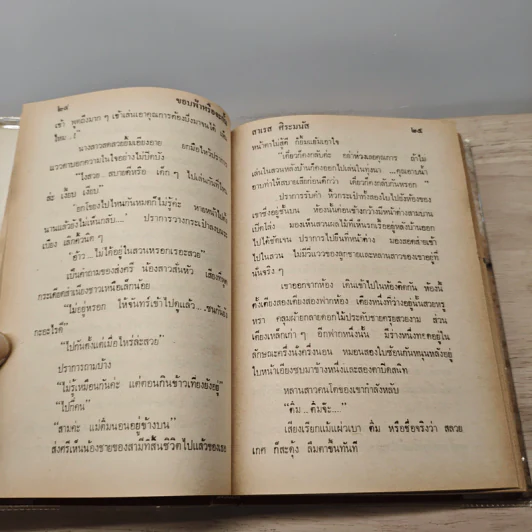 ๒๔
ขอบฟ้าหรือจะกั้น
เช้า พูดถึงมาก ๆ เข้าเล่นเอาคุณการต้องบึ่งมาจนได้
ไหม...!"
นางสาวสดสวยยิ้มเอียงอาย ยกมือไหว้
แววตาบอกความในใจอย่างไม่ปิดบัง
"ไงสวย.. สบายดีหรือ เด็ก ๆ ไปเล่นกันที่ไหน
ล่ะ เงียบ เงียบ"
"ออกโขยงไปไหนกันหมดก็ไม่รู้ค่ะ หายหน้าไป
นานแล้วยังไม่เห็นกลับ..." ปราการวางกระเป๋าลง
เบื้อง เลิกคิ้วนิด ๆ
"อ้าว...ไม่ได้อยู่ในสวนหรอกเรอะสวย"
เป็นคำถามของส่งศรี น้องสาวสั่นหัว เสียงที่พูด
กระเดียดสำเนียงชาวเหนือเล็กน้อย
"ไม่อยู่หรอก ให้จันทร์เข้าไปดูแล้ว...ซนกัน
กะอะไรดี"
"ไปกันตั้งแต่เมื่อไหร่ล่ะสวย"
ปราการถามบ้าง
"ไม่รู้เหมือนกันค่ะ แต่ตอนกินข้าวเที่ยงยังอยู่"
"ไปกี่คน"
"สามค่ะ แม่ติ๋มนอนอยู่ข้างบน"
ส่งศรีเห็นน้องชายของสามีที่สิ้นชีวิตไปแล้วของเธอ
สาเรส ศิระมนัส
๒๕
หน้าตาไม่สู้ดี ก็ยิ้มแย้มเอาใจ
"เดี๋ยวก็คงกลับค่ะ อย่าห่วงเลยคุณการ ถ้าไม่
เล่นในสวนหลังบ้านก็คงออกไปเล่นในทุ่งนา ...คุณอาบน้ำ
อาบท่าให้สบายเสียก่อนดีกว่า เดี๋ยวก็คงกลับกันหรอก"
ปราการรับคำ หิ้วกระเป๋าทั้งสองใบไปยังห้องของ
เขาซึ่งอยู่ชั้นบน ห้องนั้นค่อนข้างกว้างมีหน้าต่างสามบาน
เปิดโล่ง มองเห็นสวนผลไม้ที่เห็นรกเรื้ออยู่หลังบ้านออก
ไปได้ชัดเจน ปราการไปยืนที่หน้าต่าง มองลอดสายตาเข้า
ไปในสวน ไม่มีวี่แววของลูกชายและหลานสาวของเขาอยู่ที่
นั่นจริง ๆ
เขาออกจากห้อง เดินเข้าไปในห้องติดกัน ห้องนี้
ตั้งเตียงสองเตียงสองฟากห้อง เตียงหนึ่งที่ว่างอยู่นั้นสวยหรู
หรา คลุมผ้ายกลายดอกไม้ประดับชายครุยสวยงาม ส่วน
เตียงเหล็กเก่า ๆ อีกฟากหนึ่งนั้น มีร่างหนึ่งทอดอยู่ใน
ลักษณะครึ่งนั่งครึ่งนอน หมอนสองใบซ้อนกันหนุนหลังอยู่
ใบหน้าเอียงซบมาข้างหนึ่งและสองตาปิดสนิท
หลานสาวคนโตของเขากำลังหลับ
"ติ๋ม ...ติ๋มจ๊ะ..."
เสียงเรียกแม้แผ่วเบา ติ๋ม หรือชื่อจริงว่า สลวย
เกศ ก็สะดุ้ง ลืมตาขึ้นทันที